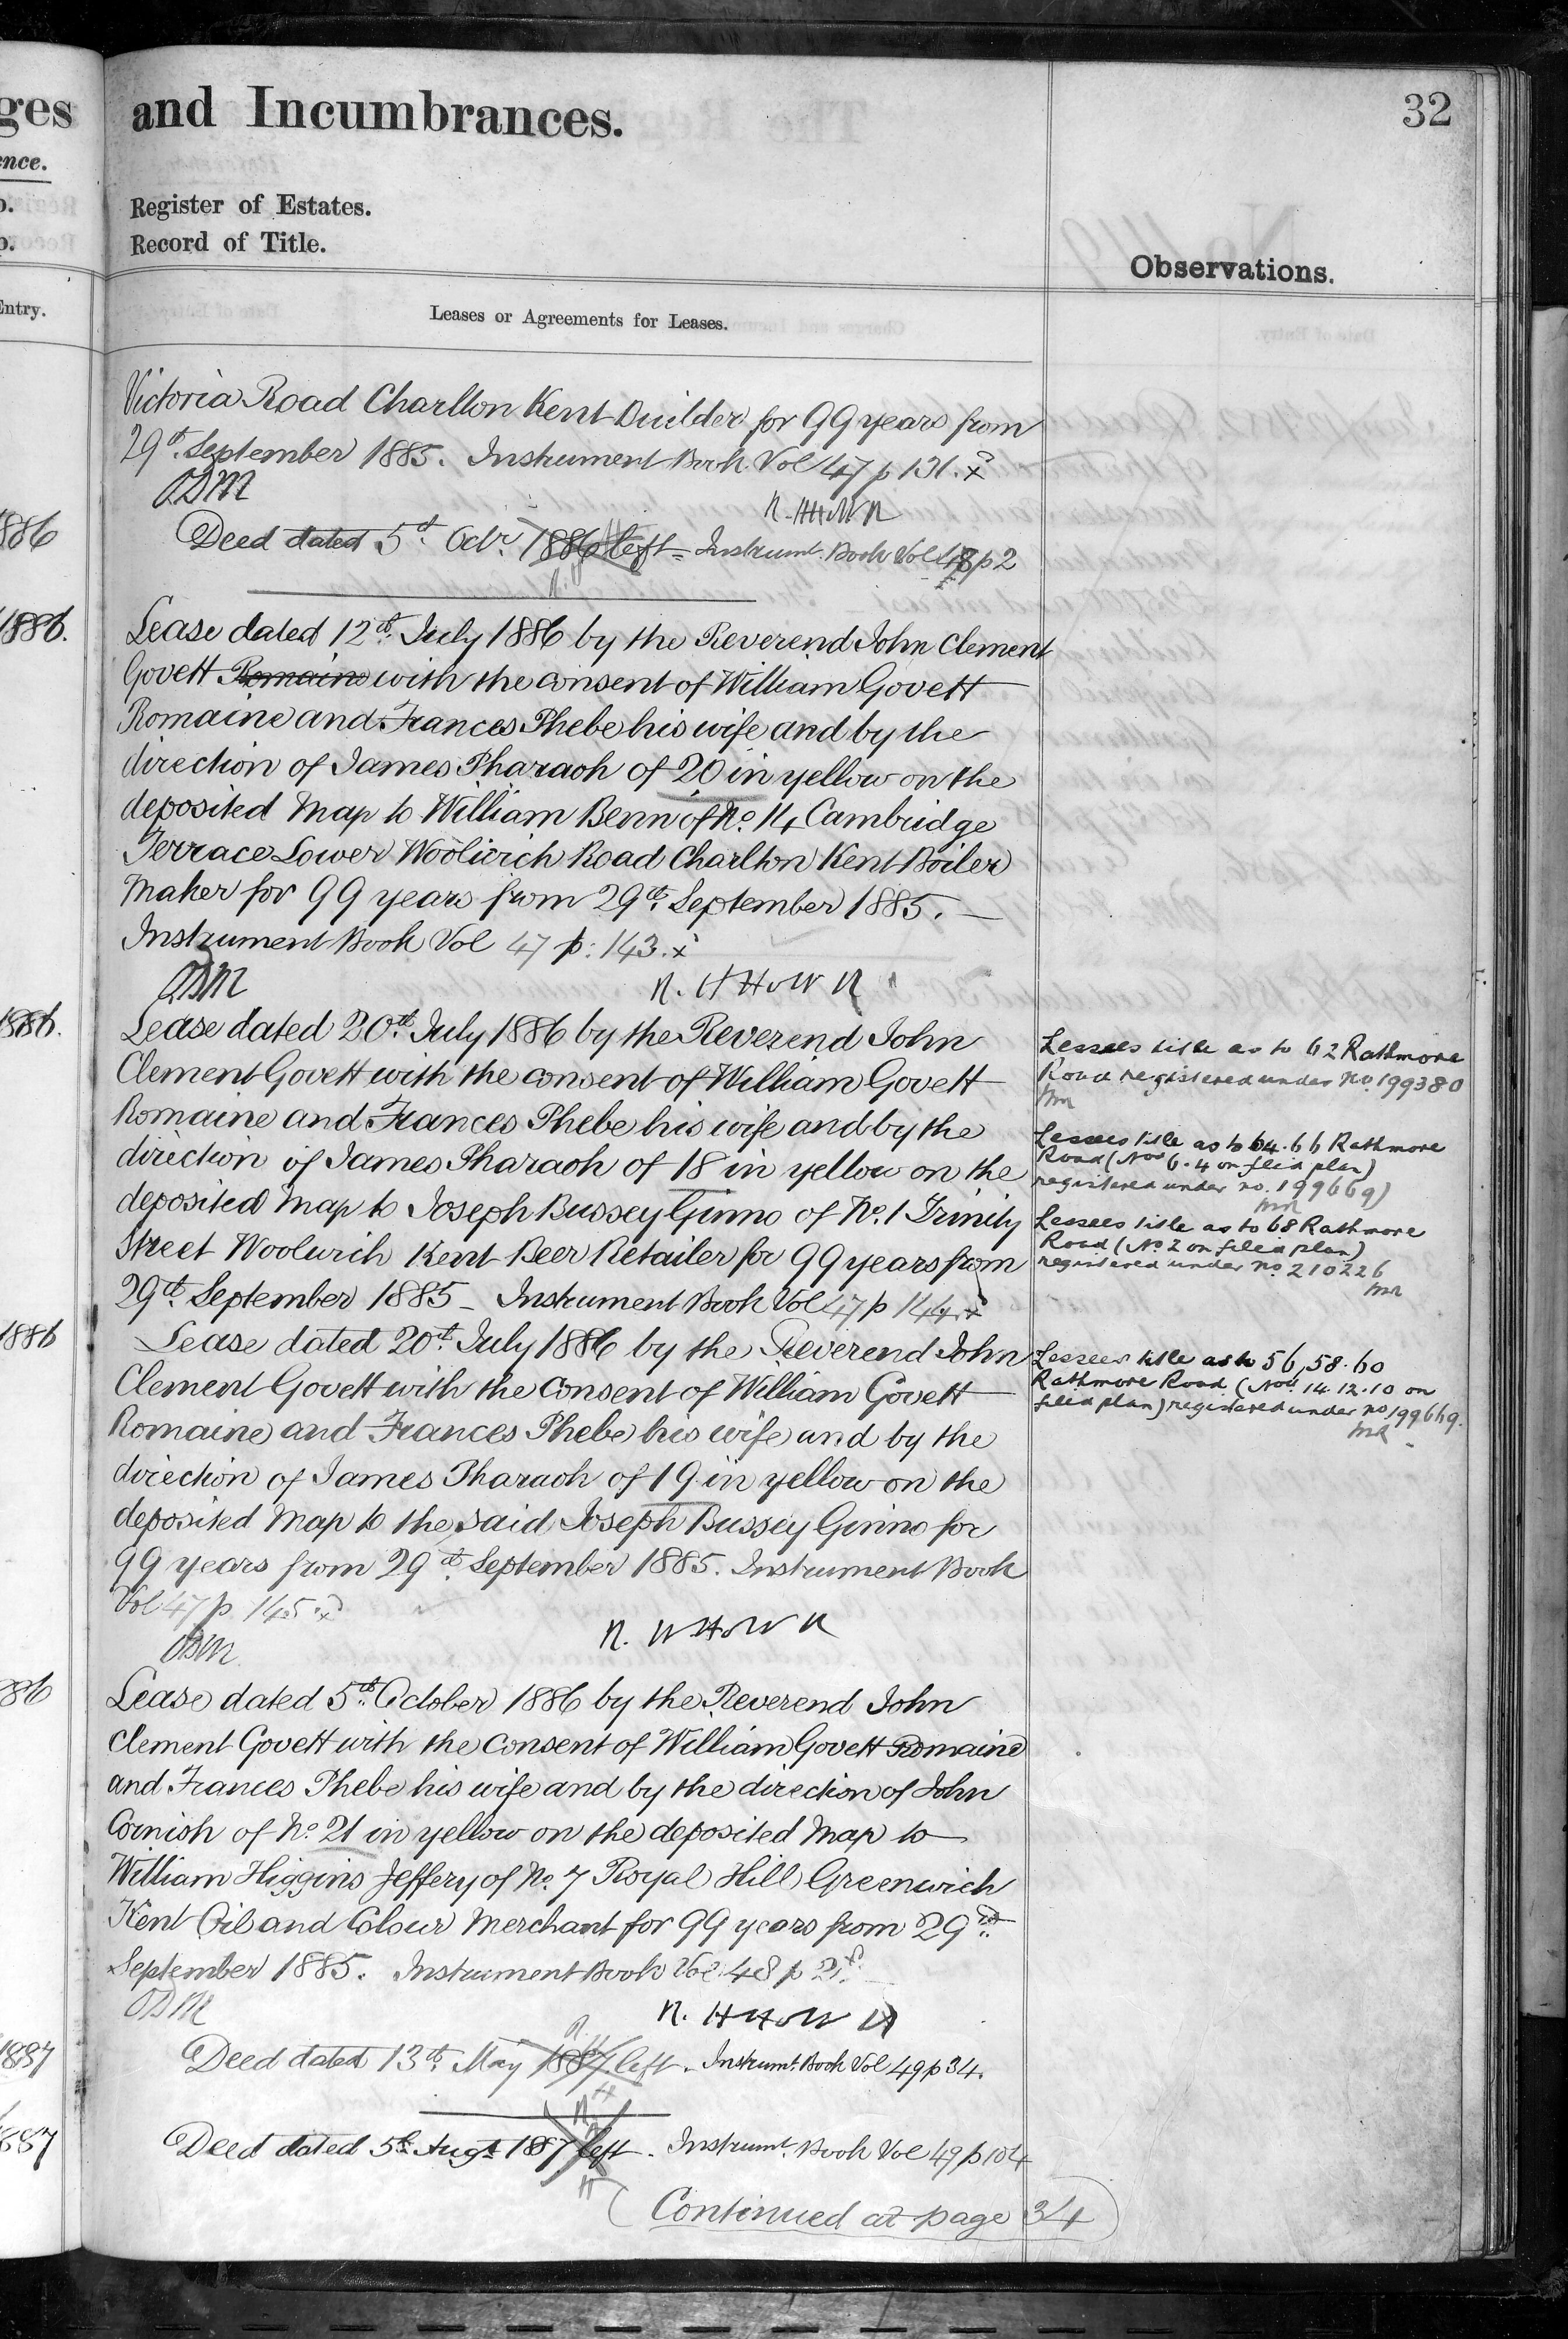 ges
and Incumbrances.
32
ence.
Register of Estates.
Record of Title.
Observations.
Entry.
Leases or Agreements for Leases.
Victoria Road Charlton Kent Builder for 99 years from
29th September 1885. Instrument Book Vol 47 p 131. x
ODM
1886
Deed dated 5th Octr. 1886 left - Instrumt. Book Vol 48 p 2
1886.
Lease dated 12th July 1886 by the Reverend John Clement
Govett Romaine with the consent of William Govett
Romaine and Frances Phebe his wife and by the
direction of James Pharaoh of 20 in yellow on the
deposited Map to William Benn of No. 14 Cambridge
Terrace Lower Woolwich Road Charlton Kent Boiler
Maker for 99 years from 29th September 1885. —
Instrument Book Vol 47 p: 143. x
ODM
1886.
Lease dated 20th July 1886 by the Reverend John
Clement Govett with the consent of William Govett
Romaine and Frances Phebe his wife and by the
direction of James Pharaoh of 18 in yellow on the
deposited Map to Joseph Bussey Ginno of No. 1 Trinity
Street Woolwich Kent Beer Retailer for 99 years from
29th September 1885 - Instrument Book Vol 47 p 144. x
Lessees title as to 62 Rathmore
Road registered under no. 199380
Lessees title as to 64. 66 Rathmore
Road (Nos 6. 4 on filed plan)
registered under no. 199669)
Lessees title as to 68 Rathmore
Road (No 2 on filed plan)
registered under no. 210226
1886
Lease dated 20th July 1886 by the Reverend John
Clement Govett with the consent of William Govett
Romaine and Frances Phebe his wife and by the
direction of James Pharaoh of 19 in yellow on the
deposited Map to the said Joseph Bussey Ginno for
99 years from 29th September 1885. Instrument Book
Vol 47 p 145. x
ODM
Lessees title as to 56, 58. 60
Rathmore Road (Nos 14. 12. 10 on
filed plan) registered under no 199669.
86
Lease dated 5th October 1886 by the Reverend John
Clement Govett with the consent of William Govett Romaine
and Frances Phebe his wife and by the direction of John
Cornish of No. 21 in yellow on the deposited Map to
William Higgins Jeffery of No. 7 Royal Hill Greenwich
Kent Oil and Colour Merchant for 99 years from 29th
September 1885. Instrument Book Vol 48 p 2
ODM
1887
Deed dated 13th May 1887 left. Instrumt. Book Vol 49 p 34.
1887
Deed dated 5th Augt 1887 left. Instrumt. Book Vol 49 p 104
(Continued at page 34)